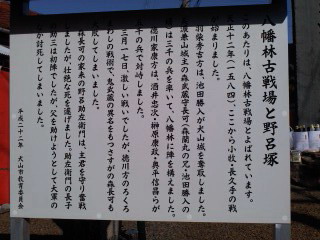 八幡林古戦場と野呂塚
のあたりは、八幡林古戦場とよばれています。
正十二年(一五八四)、ここから小牧・長久手の戦
始まりました。
羽柴秀吉方は、池田勝入が犬山城を奪取しました。
濃兼山城主の森武蔵守長可(森蘭丸の兄・池田勝入の
は三千の兵を率いて、八幡林に陣を構えました。
徳川家康方は、酒井忠次・榊原康政・奥平信昌らが
千の兵で対峙しました。
三月一七日、激しい戦いでしたが、徳川方のろくろ
わしの戦術で、鬼武蔵の異名をもつさすがの森長可も
敗してしまいました。
森長可の家来の野呂助左衛門は、主君を守り奮戦
ましたが、壮絶な死を遂げました。助左衛門の長子
助三は初陣でしたが、父を助けようとして大軍の
が討死してしまいました。
平成二十二年 犬山市教育委員会